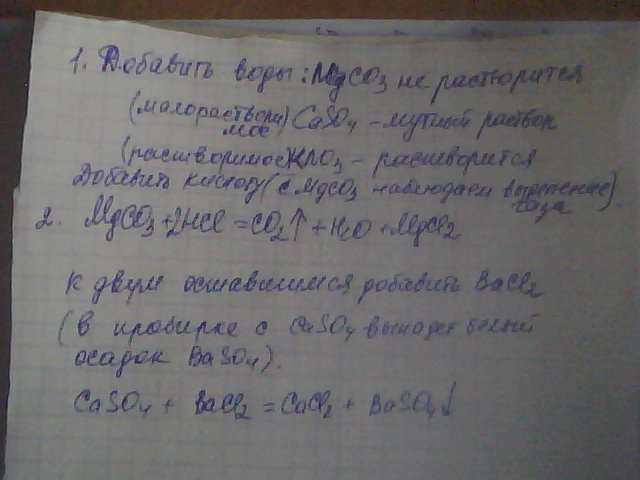 1. Добавить воды: MgCO3 не растворится
(малораствори
мое) CaSO4 – мутный раствор
(растворимое) KNO3 – растворится
Добавить кислоту (с MgCO3 наблюдаем выделение
газа)
2. MgCO3 + 2HCl = CO2↑ + H2O + MgCl2
К двум оставшимся добавить BaCl2
(в пробирке с CaSO4 выпадет белый
осадок BaSO4).
CaSO4 + BaCl2 = CaCl2 + BaSO4↓